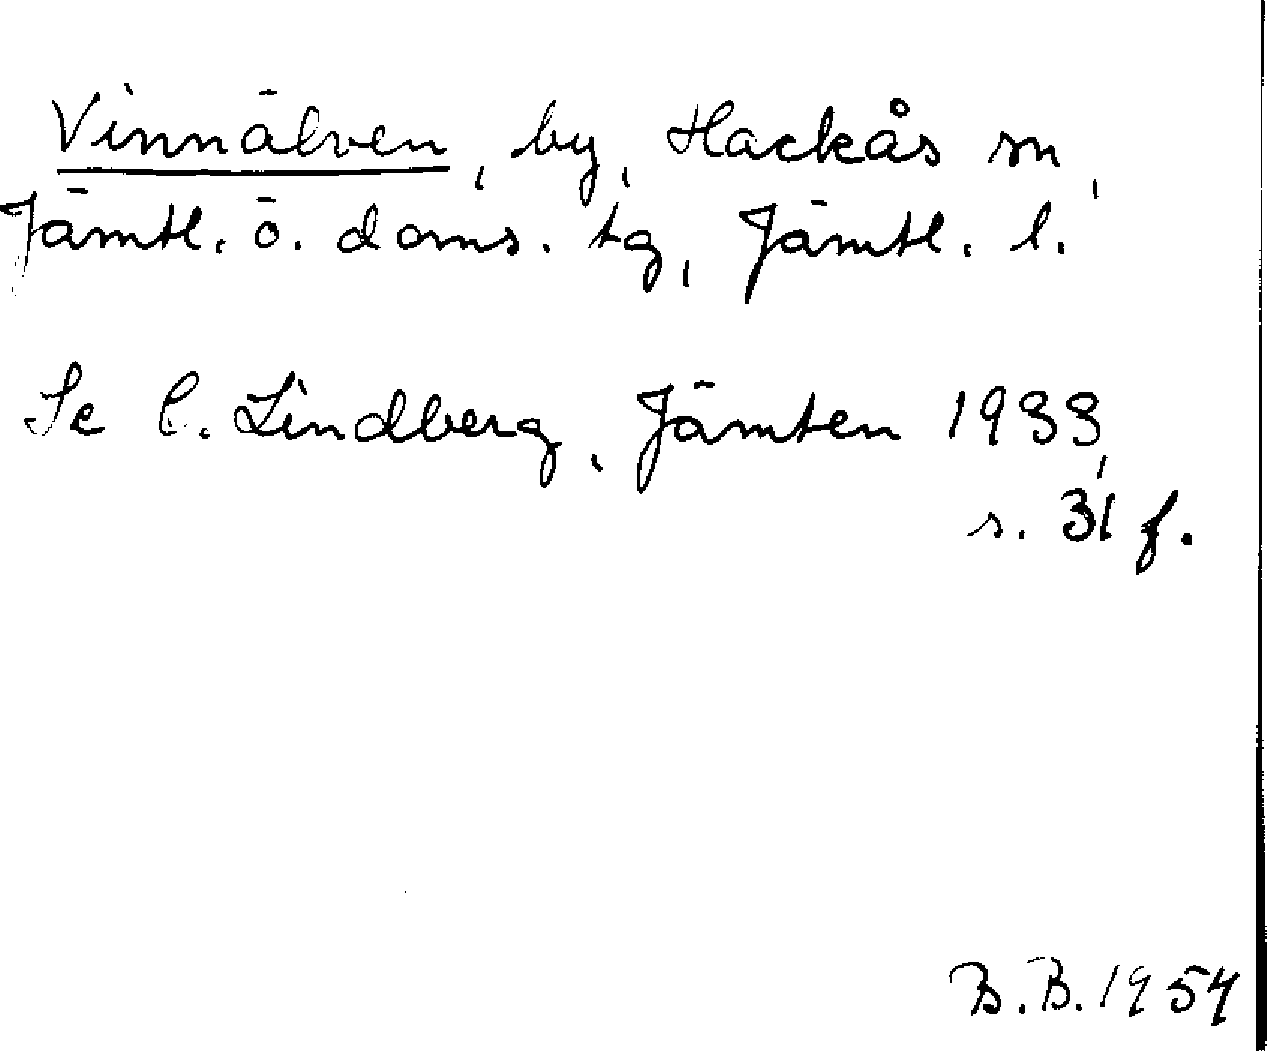 Vinnälven, by, Hackås sn,
Jämtl. ö. doms. tg, Jämtl. l.
Se C. Lindberg, Jämten 1933,
s. 31 f.
B.B. 1954